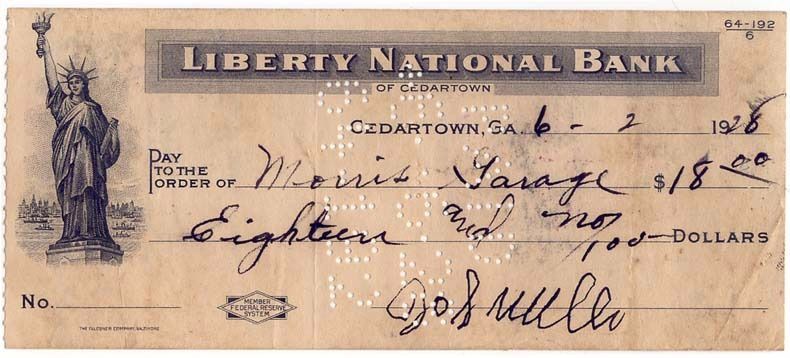 64-192
6
LIBERTY NATIONAL BANK
OF CEDARTOWN
CEDARTOWN, GA. 6 - 2 1926
PAY TO THE ORDER OF Morris Garage $18.00
Eighteen and no/100 DOLLARS
No.
MEMBER
FEDERAL RESERVE
SYSTEM